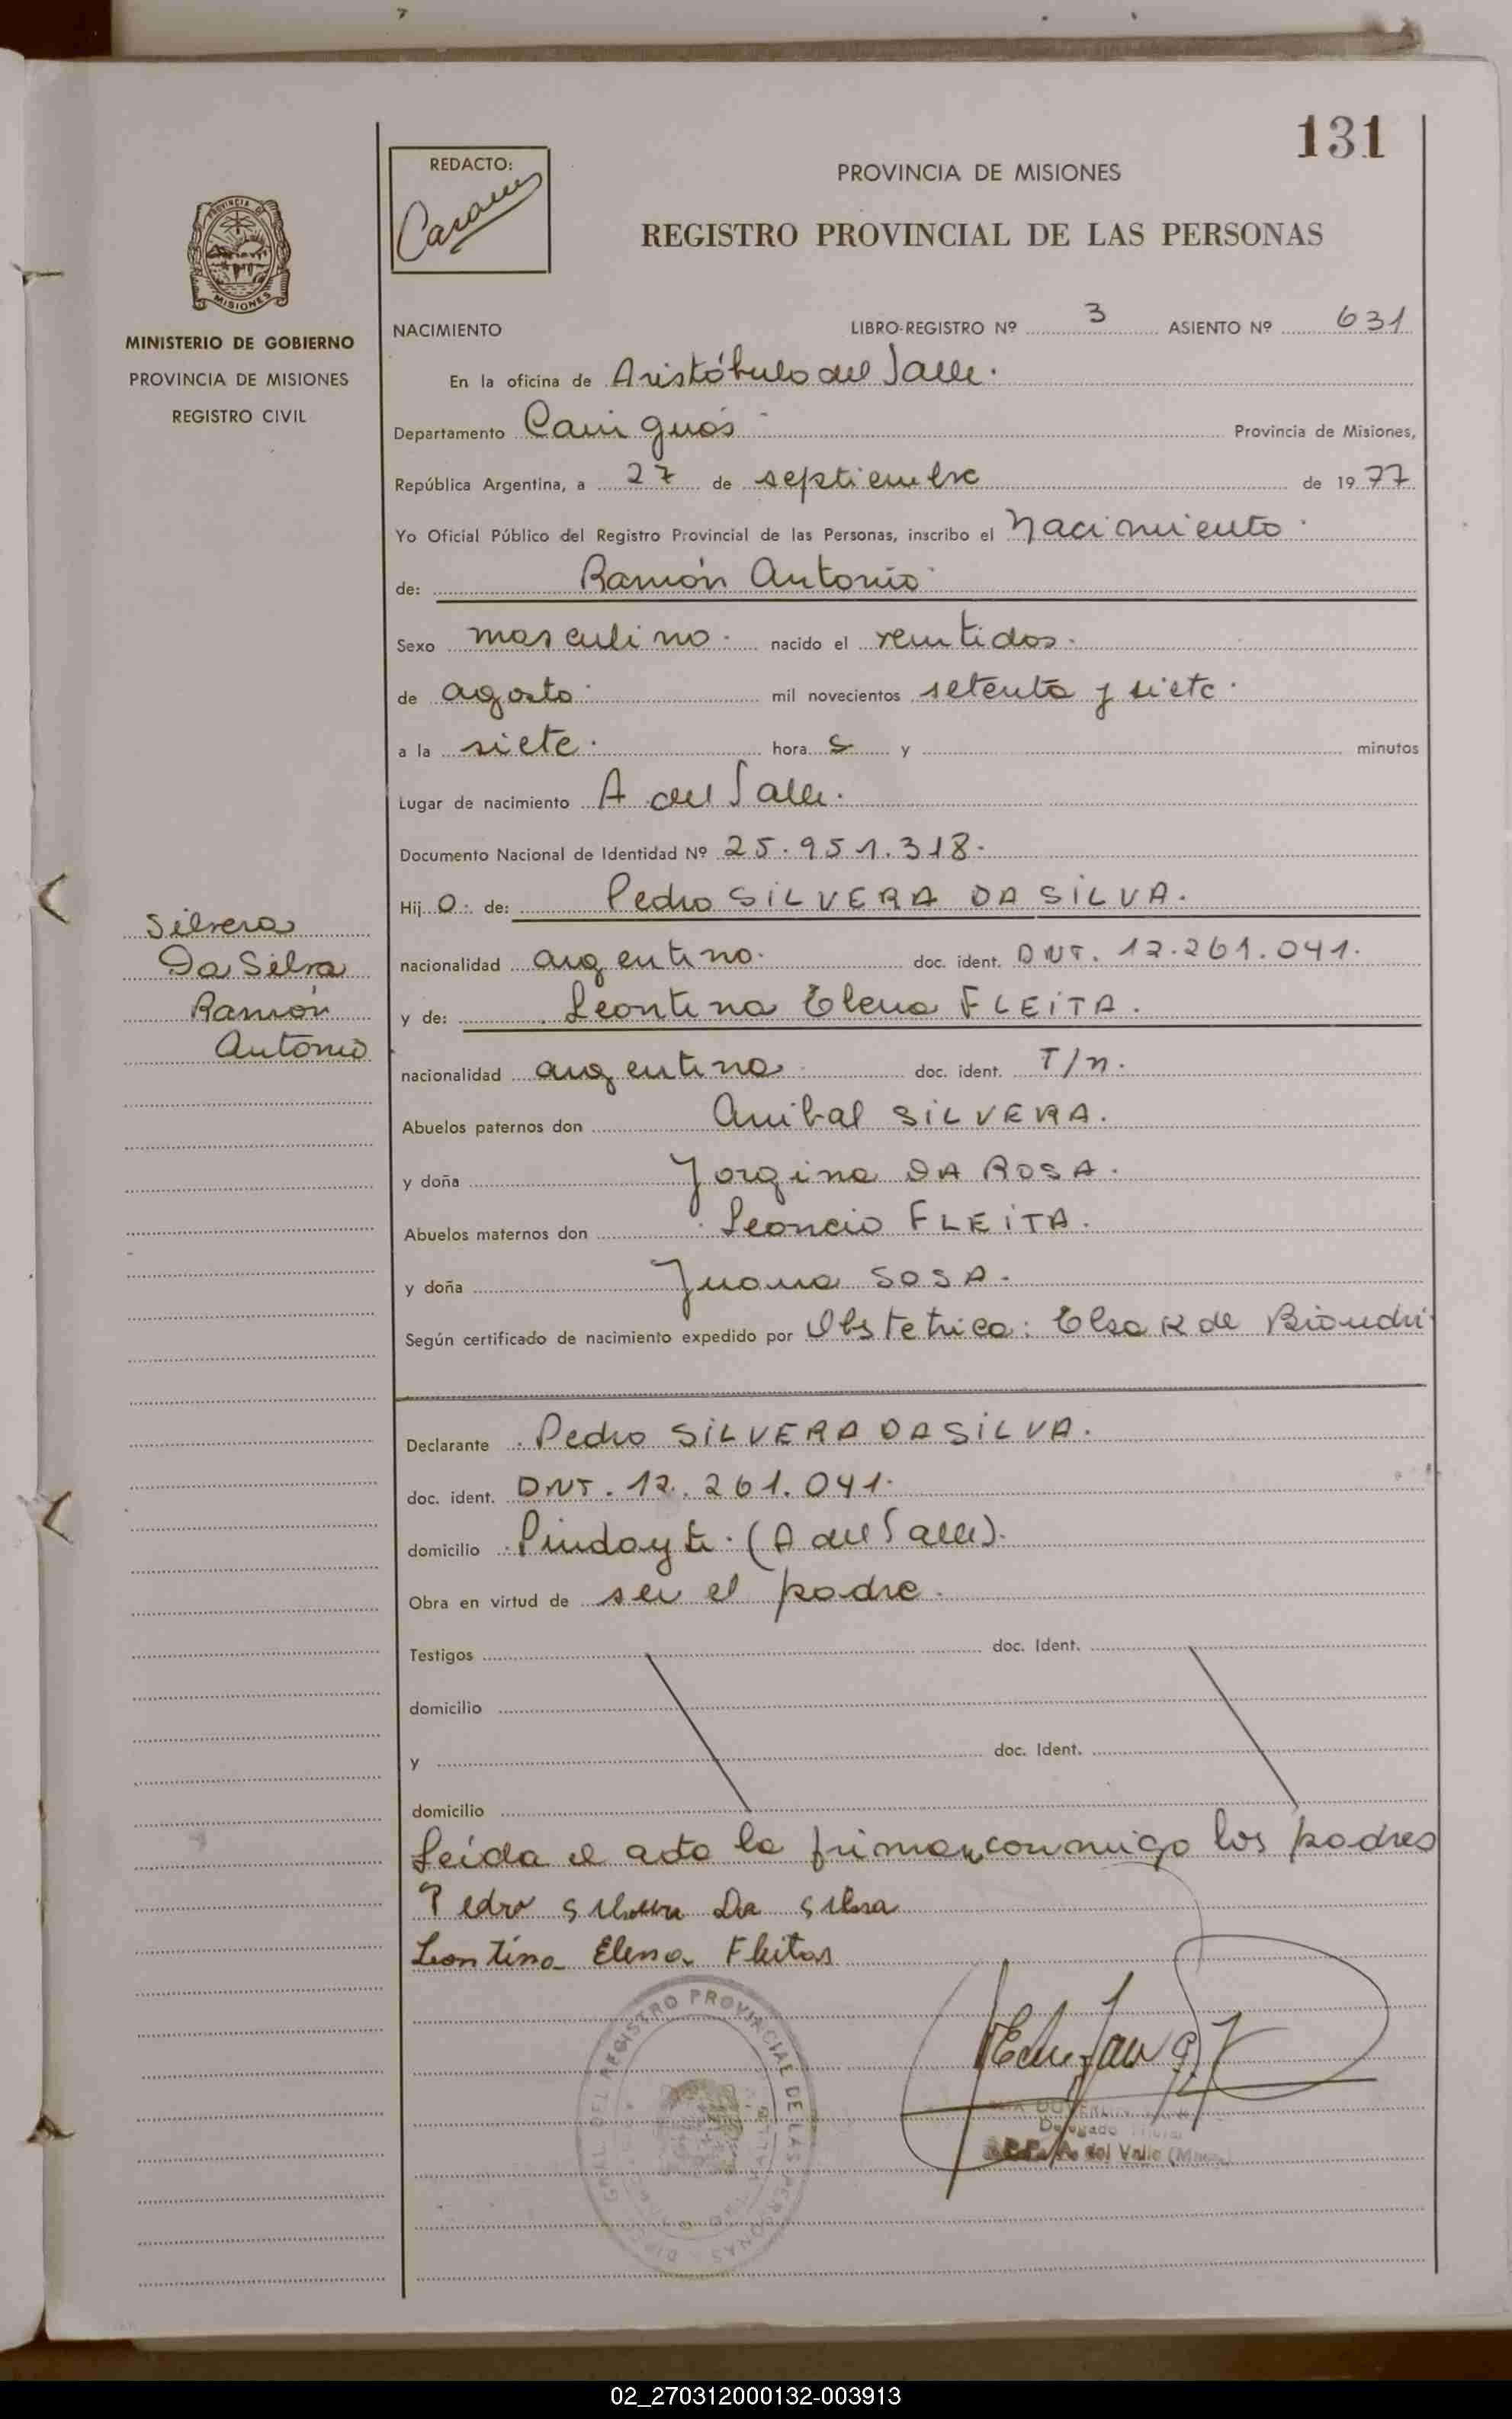 131
REDACTO:
PROVINCIA DE MISIONES
REGISTRO PROVINCIAL DE LAS PERSONAS
PROVINCIA DE
MISIONES
MINISTERIO DE GOBIERNO
PROVINCIA DE MISIONES
REGISTRO CIVIL
NACIMIENTO LIBRO-REGISTRO Nº 3 ASIENTO Nº 631
En la oficina de Aristóbulo del Valle.
Departamento Cainguás Provincia de Misiones,
República Argentina, a 27 de septiembre de 1977
Yo Oficial Público del Registro Provincial de las Personas, inscribo el Nacimiento
de: Ramón Antonio
Sexo masculino. nacido el veintidos.
de agosto mil novecientos setenta y siete.
a la siete. hora s y minutos
Lugar de nacimiento A del Valle.
Documento Nacional de Identidad Nº 25.951.318.
Hij o. de: Pedro SILVERA DA SILVA.
nacionalidad argentino. doc. ident. DNI. 12.261.041.
y de: Leontina Elena FLEITA.
nacionalidad argentina doc. ident. T/n.
Abuelos paternos don Anibal SILVERA.
y doña Jorgina DA ROSA.
Abuelos maternos don Leoncio FLEITA.
y doña Juana SOSA.
Según certificado de nacimiento expedido por Obstetrica: Elsa K de Biondri
Silvera
Da Silva
Ramón
Antonio
Declarante Pedro SILVERA DA SILVA.
doc. ident. DNI. 12.261.041.
domicilio Pindayti. (A del Valle).
Obra en virtud de ser el padre.
Testigos doc. Ident.
domicilio
y doc. Ident.
domicilio
Leída el acta la firman conmigo los padres
Pedro Silvera Da Silva
Leontina Elena Fleitas
REGISTRO PROVINCIAL DE LAS PERSONAS
Delegado
A. del Valle
02_270312000132-003913